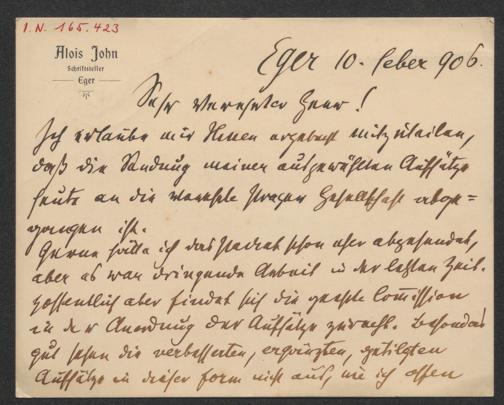 I. N. 165.423
Alois John
Schriftsteller
Eger
Eger 10. Feber 906.
Sehr verehrter Herr!
Ich erlaube mir Ihnen ergebenst mitzuteilen,
daß die Sendung meiner ausgewählten Aufsätze
heute an die verehrte Prager Gesellschaft abge=
gangen ist.
Gerne hätte ich das Packet schon eher abgesendet,
aber es war dringende Arbeit in der letzten Zeit.
Hoffentlich aber findet sich die geehrte Commission
in der Anordnung der Aufsätze zurecht. Besonders
gut sehen die verbesserten, ergänzten, getilgten
Aufsätze in dieser Form nicht aus, wie ich offen